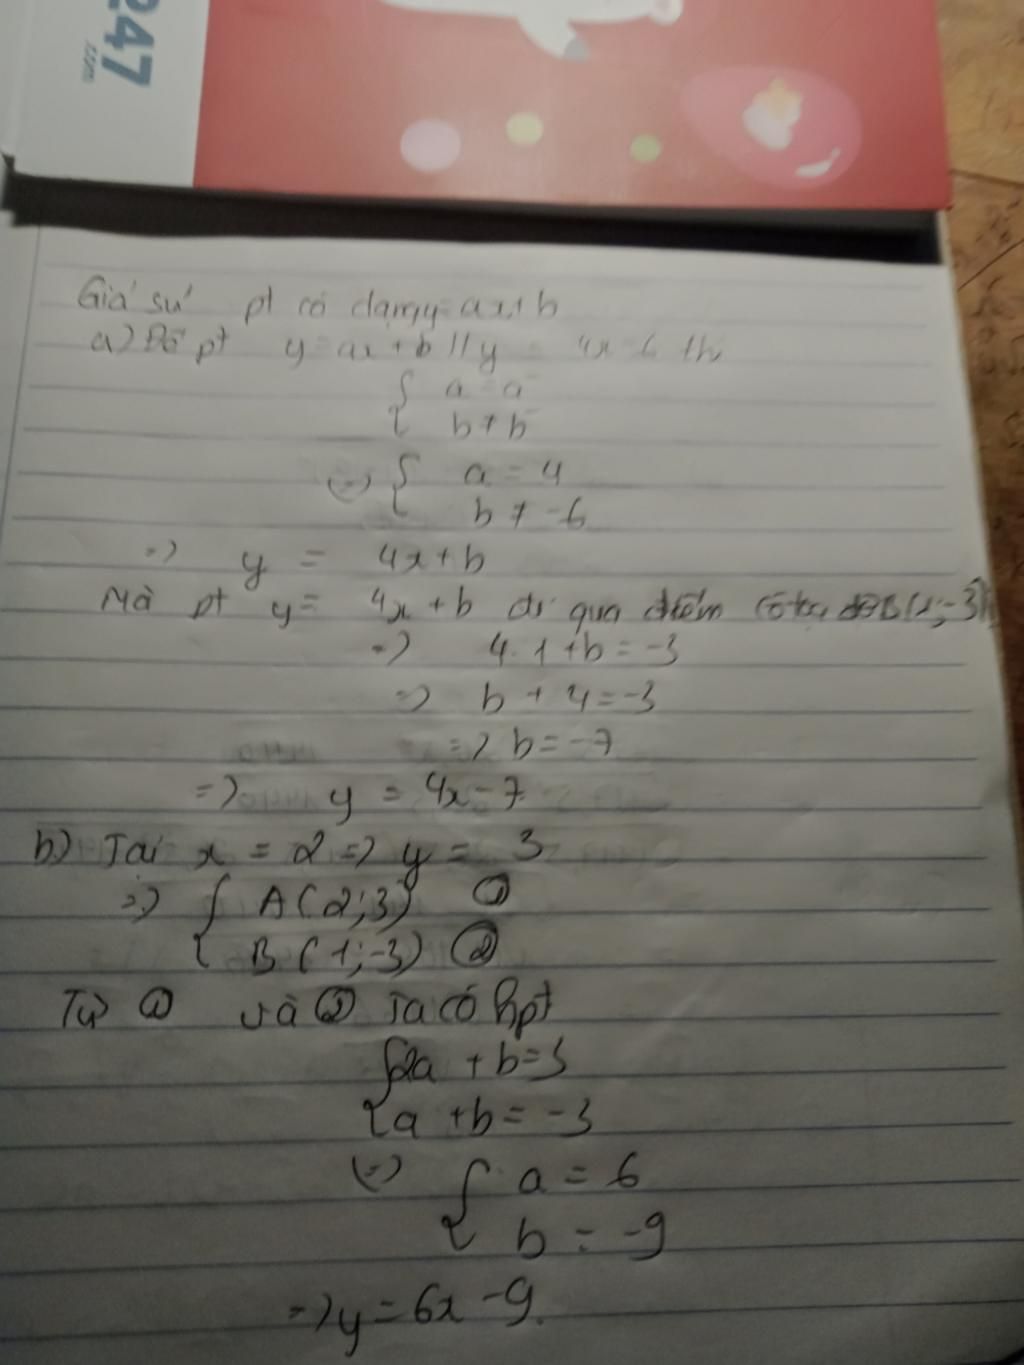 247
.com
Giả sử pt có dạng y=ax+b
a) Để pt y=ax+b // y = 4x-6 thì
{ a = a'
b ≠ b'
(=) { a = 4
b ≠ -6
=) y = 4x+b
Mà pt y= 4x+b đi qua điểm có tọa độ B(1;-3)
=) 4.1+b=-3
=) b+4=-3
=) b=-7
=) y = 4x-7
b) Tại x = 2 =) y = 3
=) { A(2;3) ①
B(1;-3) ②
Từ ① và ② Ta có hpt
{ 2a +b=3
a +b=-3
(=) { a = 6
b = -9
=) y = 6x-9.